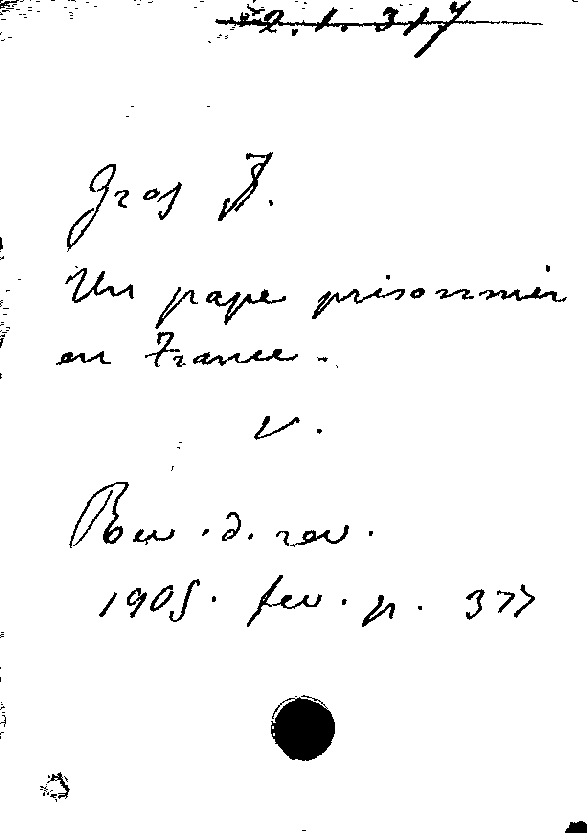 2.1.317
Gros J.
Un pape prisonnier
en France.
v.
Rev. d. rev.
1905. fev. p. 377